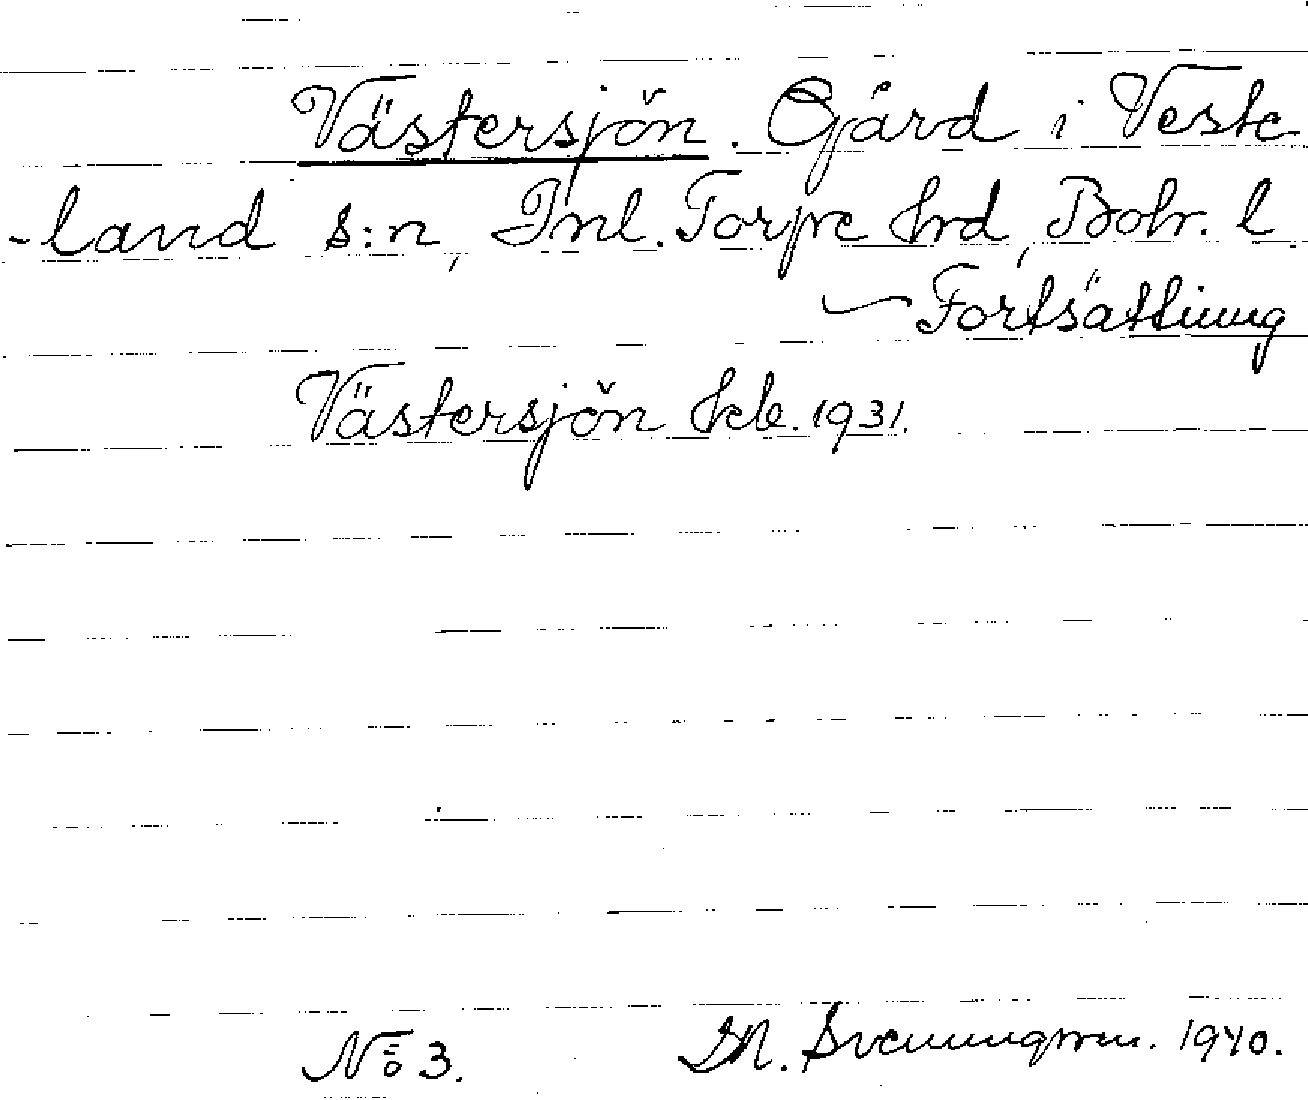 Västersjön. Gård i Veste
-land s:n, Inl. Torpe hrd, Boh. l.
Fortsättning
Västersjön hcle. 1931.
No 3. M. Svenningsson. 1940.